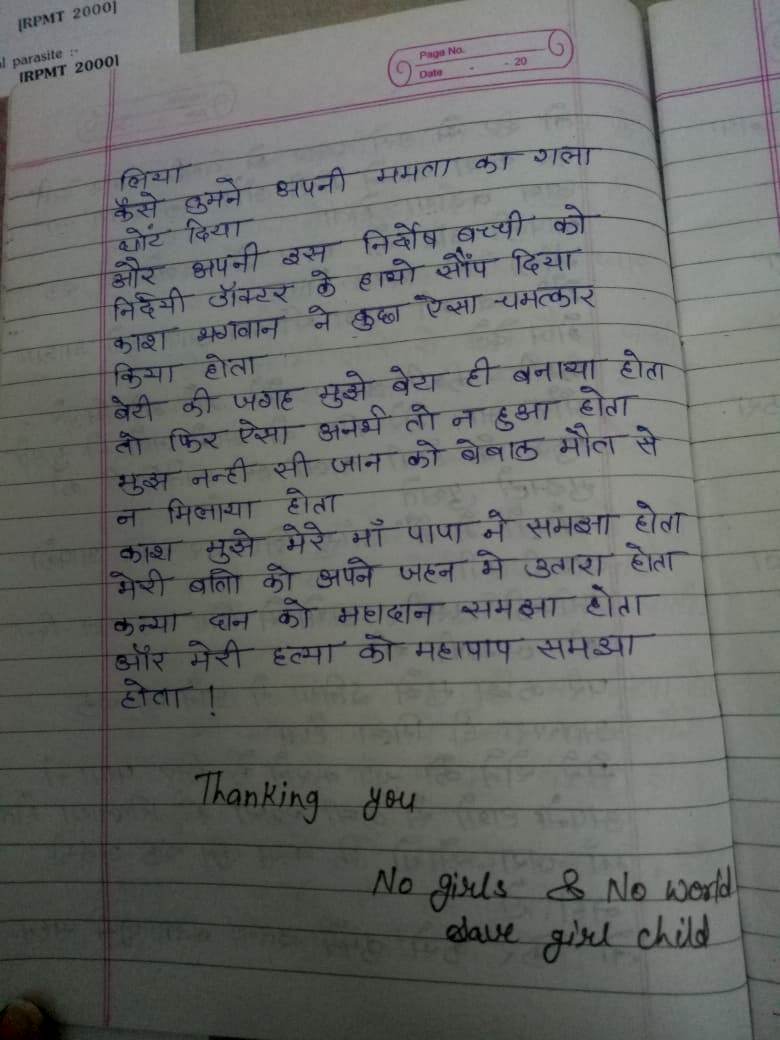 [RPMT 2000]
l parasite :-
[RPMT 2000]
Page No.
Date - - 20
लिया
कैसे तुमने अपनी ममता का गला
घोंट दिया
और अपनी इस निर्दोष बच्ची को
निर्दयी डॉक्टर के हाथो सौंप दिया
काश भगवान ने कुछ ऐसा चमत्कार
किया होता
बेटी की जगह मुझे बेटा ही बनाया होता
तो फिर ऐसा अनर्थ तो न हुआ होता
मुझ नन्ही सी जान को बेवाक मौत से
न मिलाया होता
काश मुझे मेरे माँ पापा ने समझा होता
मेरी बातो को अपने जहन मे उतारा होता
कन्या दान को महादान समझा होता
और मेरी हत्या को महापाप समझा
होता !
Thanking you
No girls & No world
Save girl child